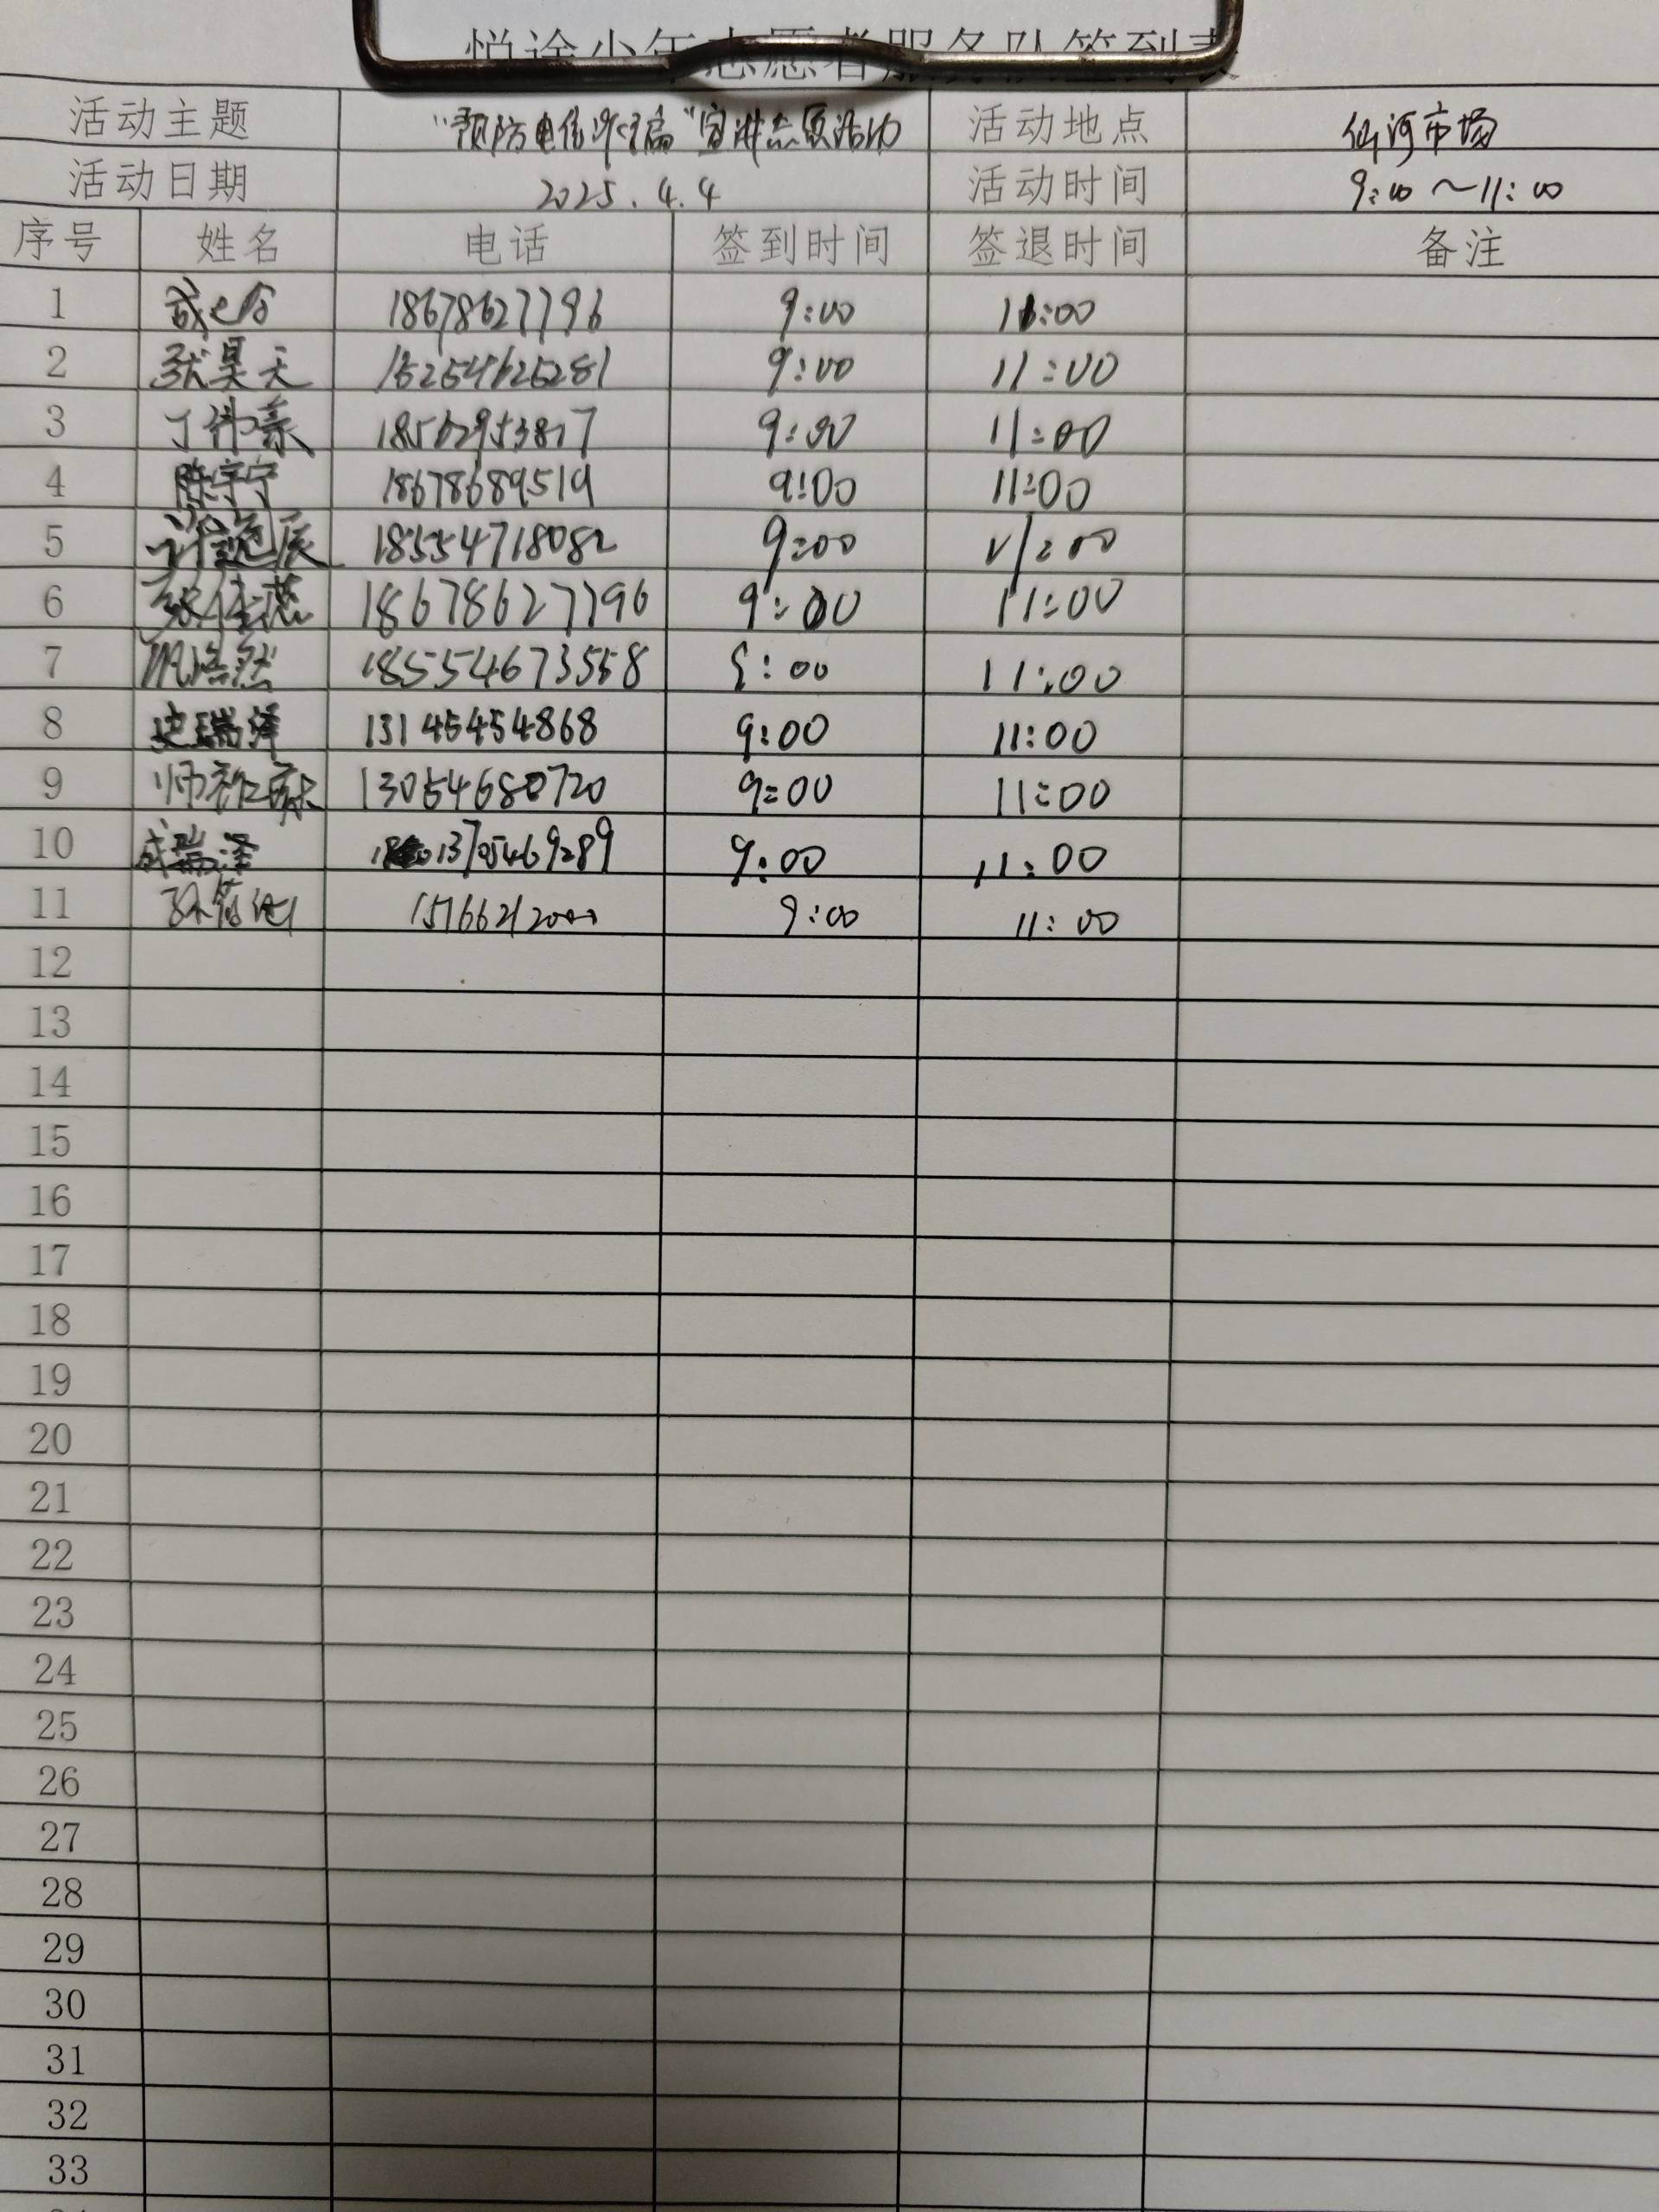 悦途少年志愿者服务队签到表
活动主题 "预防电信诈骗"宣讲志愿活动 活动地点 仙河市场
活动日期 2025.4.4 活动时间 9:00～11:00
序号 姓名 电话 签到时间 签退时间 备注
1 18678627796 9:00 11:00
2 张昊天 15254625281 9:00 11:00
3 丁 18562953817 9:00 11:00
4 陈宇宁 18678689519 9:00 11:00
5 18554718082 9:00 11:00
6 18678627796 9:00 11:00
7 18554673558 9:00 11:00
8 史瑞泽 13145454868 9:00 11:00
9 13054680720 9=00 11:00
10 成瑞泽 13705469289 9:00 11:00
11 9:00 11:00
12
13
14
15
16
17
18
19
20
21
22
23
24
25
26
27
28
29
30
31
32
33